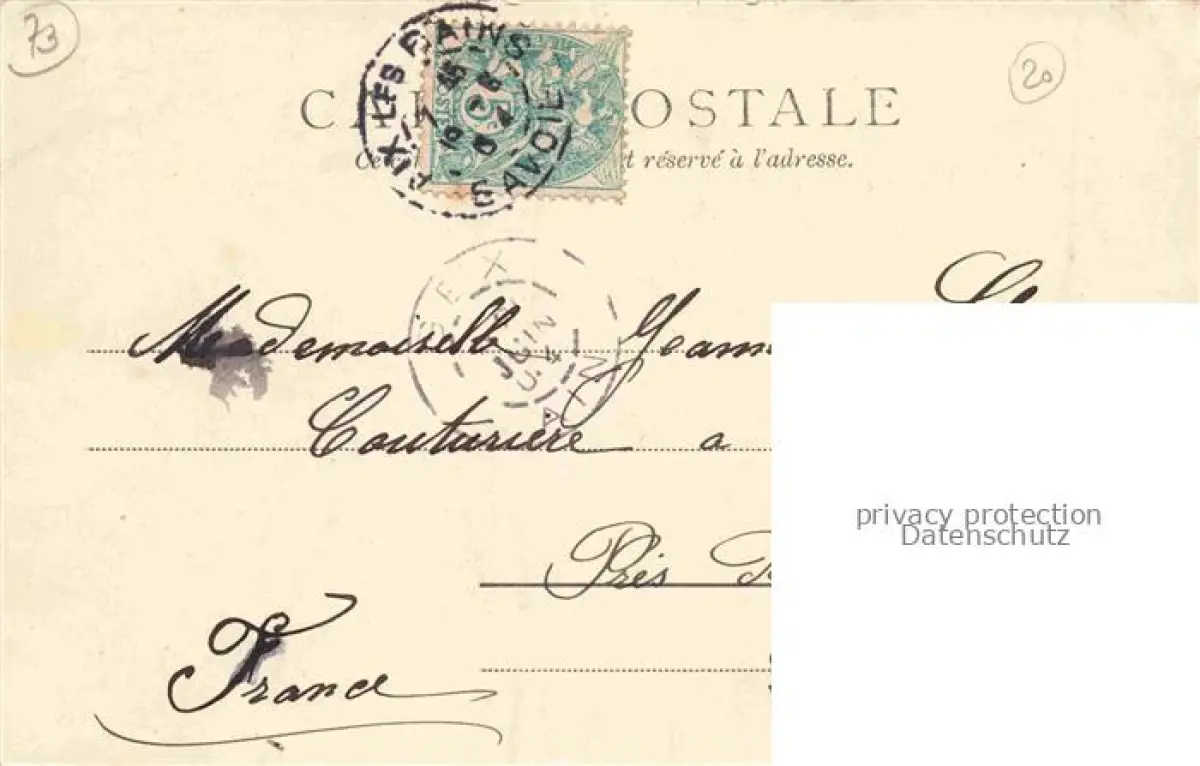 73
20
CA OSTALE
Ce t réservé à l'adresse.
AIX-LES-BAINS
SAVOIE
5
GEX
AIN
JUIN
04
Mademoiselle Jeann
Couturière a
Près
France
privacy protection
Datenschutz